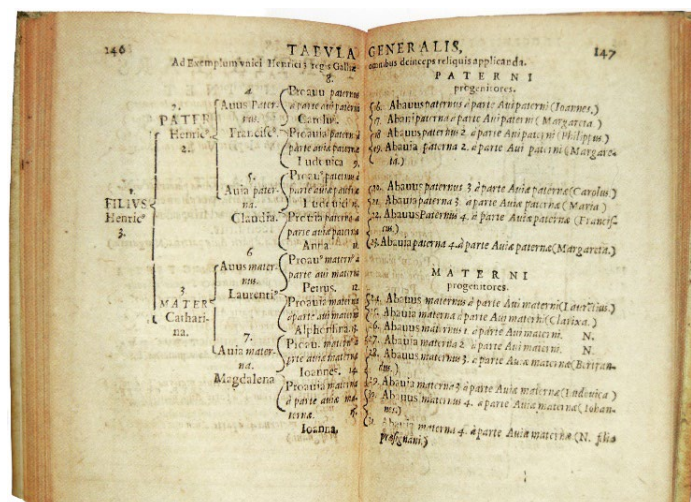 146
TABVLA GENERALIS,
147
Ad Exemplum vnici Henrici 3. regis Galliæ
omnibus deinceps reliquis applicanda.
1.
FILIVS
Henric⁹
3.
2.
PATER
Henric⁹.
2.
3
MATER
Cathari-
na.
4.
Auus Pater-
nus.
Francisc⁹.
5.
Auia pater-
na.
Claudia.
6
Auus mater-
nus.
Laurenti⁹.
7.
Auia mater-
na.
Magdalena
8.
Proauus paternus
à parte aui paterni
Carolus.
Proauia paterna
à parte auia paterna
Ludouica 9.
Proau⁹ paternus à
parte auiæ paternæ
Ludouici
Proauia paterna à
parte auiæ paternæ
Anna 11.
Proau⁹ matern⁹ à
parte aui materni
Petrus. 12.
Proauia materna
à parte aui materni
Alphonsina. 13.
Proau. matern⁹ à
parte auiæ maternæ
Ioannes. 14.
Proauia materna
à parte auiæ ma-
ternæ. 15.
Ioanna.
PATERNI
progenitores.
16. Abauus paternus à parte Aui paterni (Ioannes.)
17. Abauia paterna à parte Aui paterni (Margareta.)
18 Abauus paternus 2. à parte Aui paterni (Philippus)
19. Abauia paterna 2. à parte Aui paterni (Margare-
ta.)
20. Abauus paternus 3 à parte Auiæ paternæ (Carolus.)
21. Abauia paterna 3. à parte Auiæ paternæ (Maria)
22. Abauus Paternus 4. à parte Auiæ paternæ (Francis-
cus.)
23. Abauia paterna 4. à parte Auiæ paternæ (Margareta.)
MATERNI
progenitores.
24. Abauus maternus à parte Aui materni (Laurẽtius.)
25. Abauia materna à parte Aui materni (Clarixa.)
26. Abauus maternus 2. à parte Aui materni. N.
27. Abauia materna 2 à parte Aui materni. N.
28. Abauus maternus 3. à parte Auiæ maternæ (Bertran-
dus.)
29. Abauia materna 3 à parte Auiæ maternæ (Ludouica)
30. Abauus maternus 4. à parte Auiæ maternæ (Iohan-
nes.)
Abauia materna 4. à parte Auiæ maternæ (N. filia